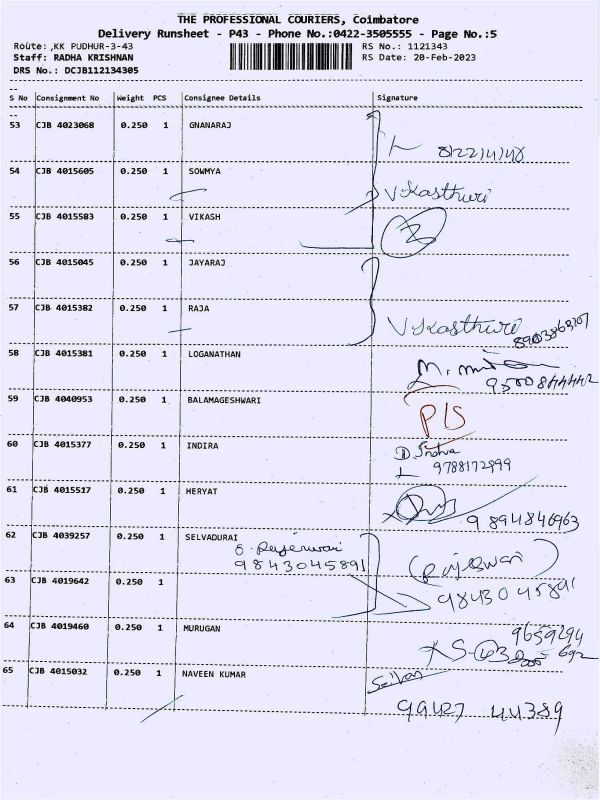 THE PROFESSIONAL COURIERS, Coimbatore
Delivery Runsheet - P43 - Phone No.:0422-3505555 - Page No.:5
Route: ,KK PUDHUR-3-43
RS No.: 1121343
Staff: RADHA KRISHNAN
RS Date: 20-Feb-2023
DRS No.: DCJB112134305
S No Consignment No Weight PCS Consignee Details Signature
53 CJB 4023068 0.250 1 GNANARAJ
54 CJB 4015605 0.250 1 SOWMYA
V Kasthuri
55 CJB 4015583 0.250 1 VIKASH
56 CJB 4015045 0.250 1 JAYARAJ
57 CJB 4015382 0.250 1 RAJA
V Kasthuri
58 CJB 4015381 0.250 1 LOGANATHAN
9500844442
59 CJB 4040953 0.250 1 BALAMAGESHWARI
P/S
60 CJB 4015377 0.250 1 INDIRA
9788172999
61 CJB 4015517 0.250 1 HERYAT
9894846963
62 CJB 4039257 0.250 1 SELVADURAI
9843045891
63 CJB 4019642 0.250 1
9843045891
64 CJB 4019460 0.250 1 MURUGAN
9659294
692
65 CJB 4015032 0.250 1 NAVEEN KUMAR
Selvan
99427 44389